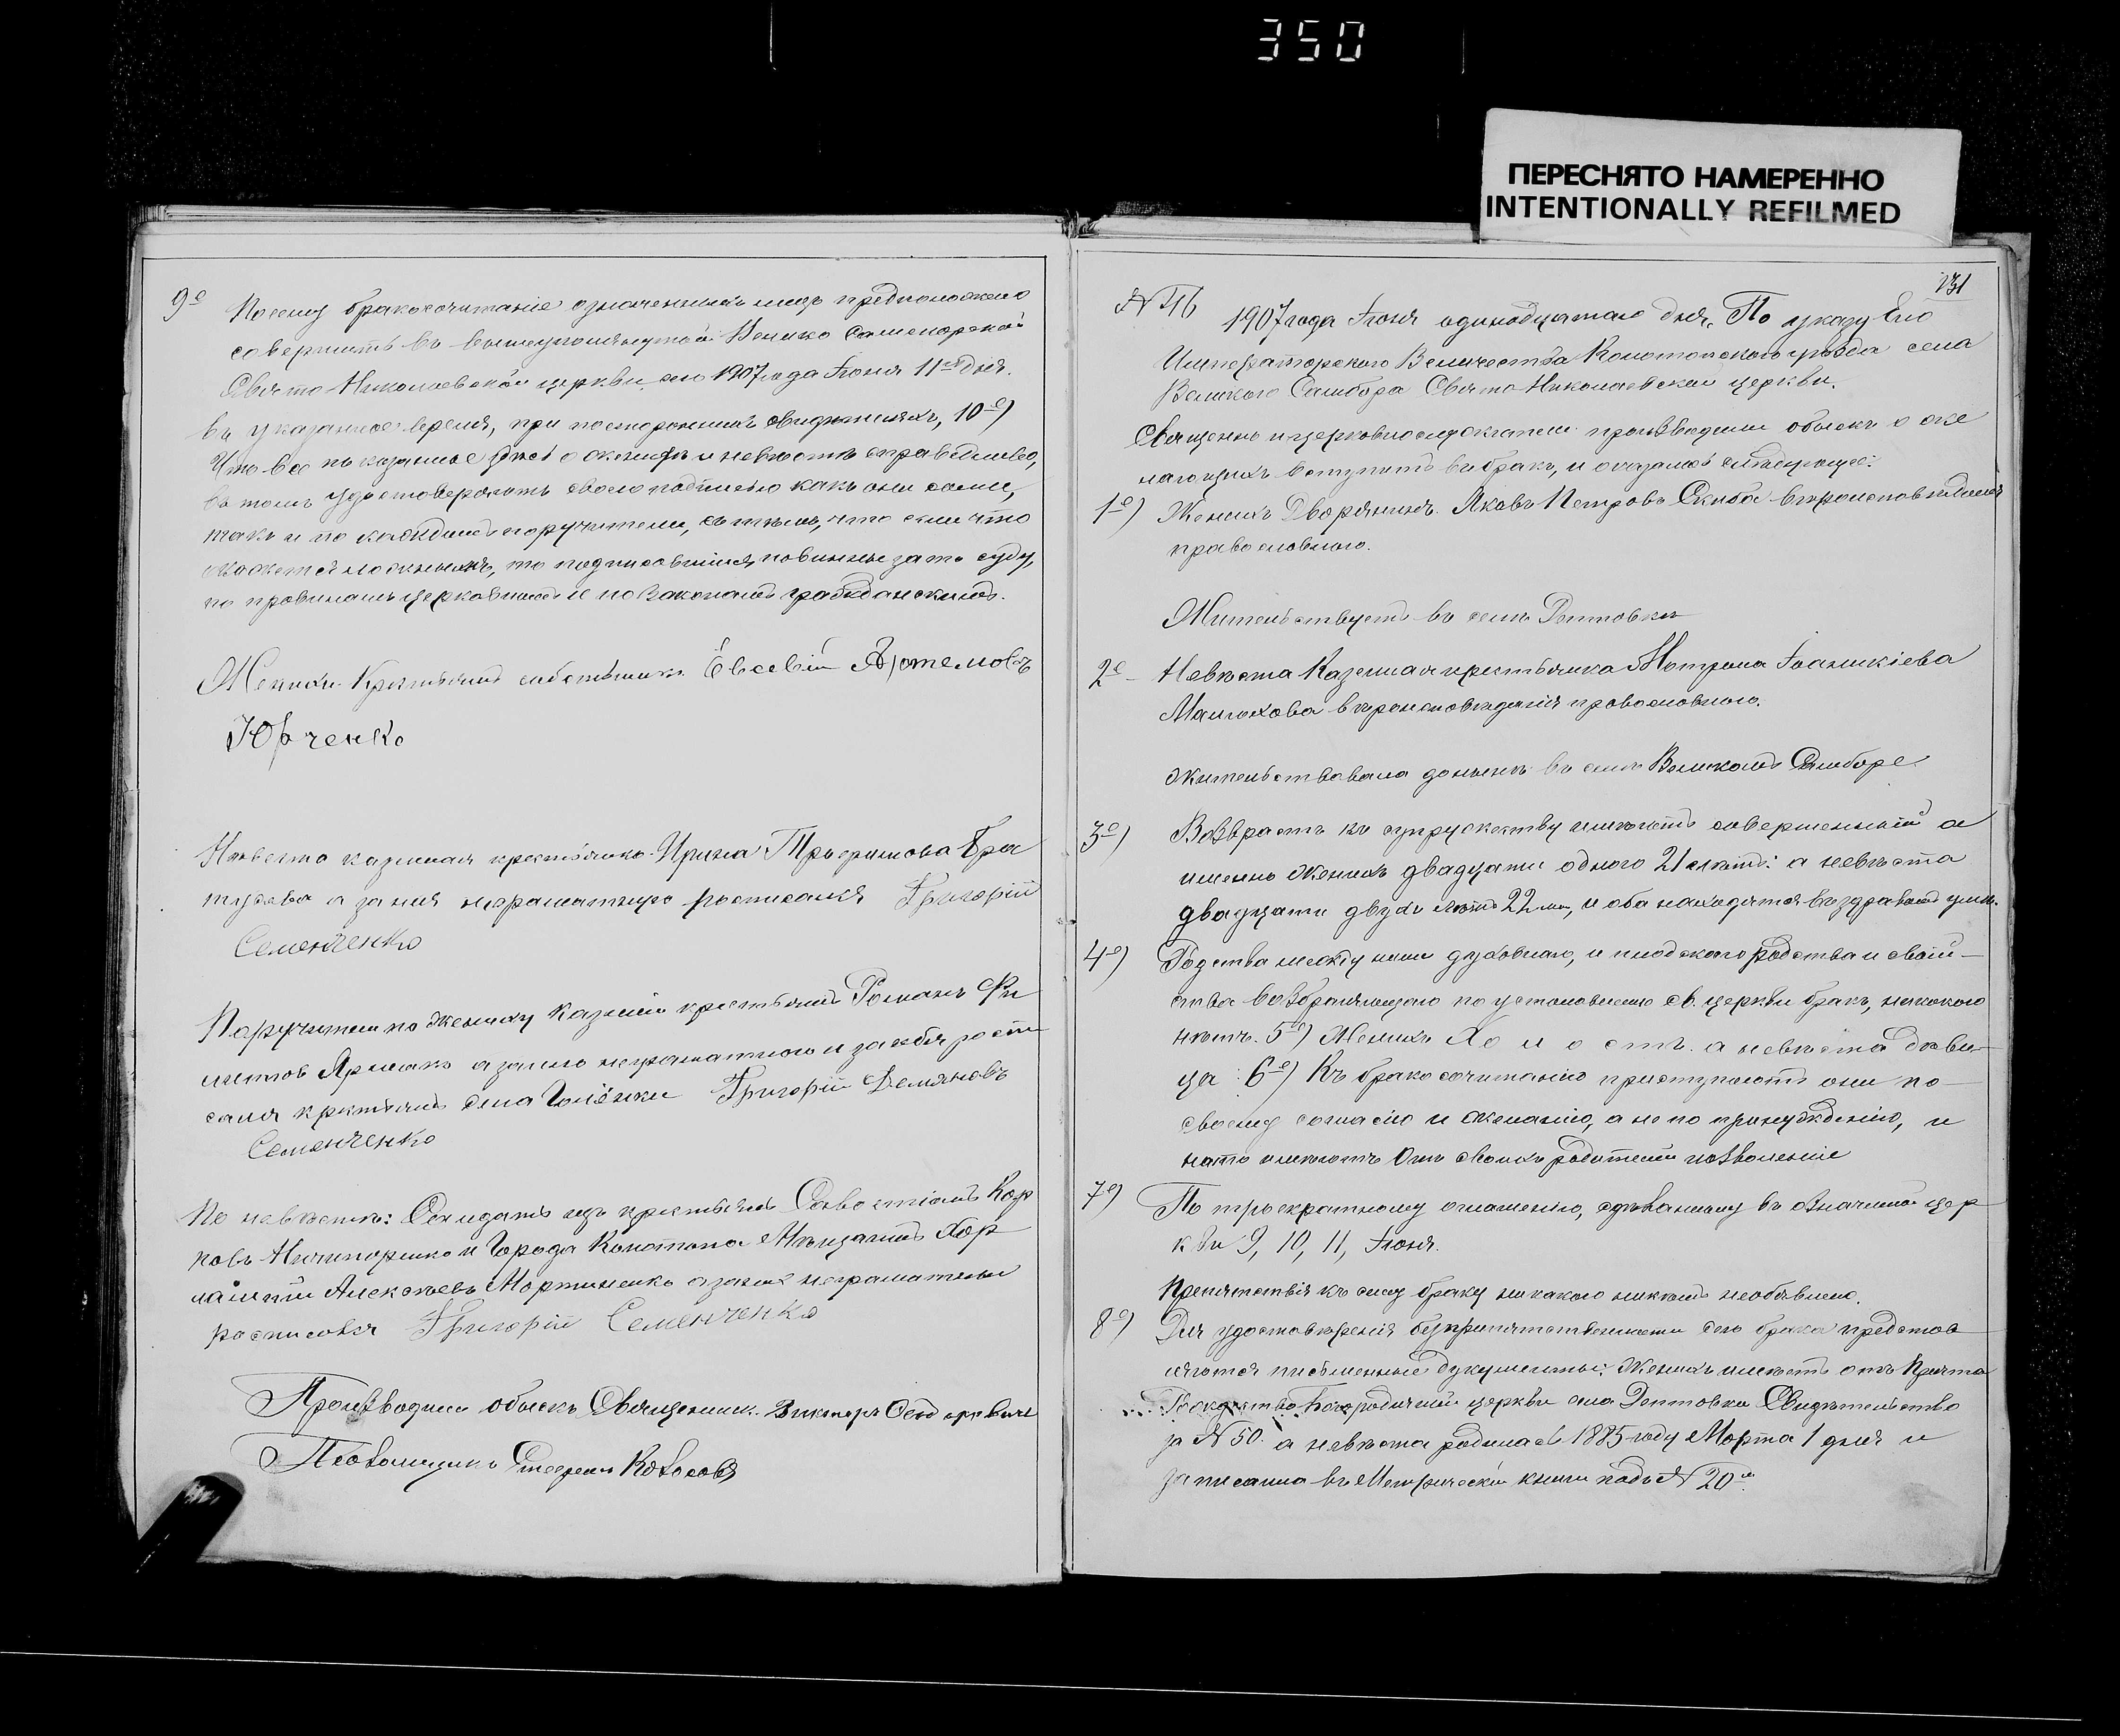 350
ПЕРЕСНЯТО НАМЕРЕННО
INTENTIONALLY REFILMED
9е Посему бракосочетаніе означенныхъ лицъ предположено
совершить въ вышеупомянутой Велико Самборской
Свято-Николаевской церкви сего 1907 года Іюня 11го дня.
въ указанное время, при постороннихъ свидѣтеляхъ, 10е)
Что все показанное здѣсь о женихѣ и невѣстѣ справедливо,
въ томъ удостоверяютъ своею подписью какъ они сами,
такъ и по каждомъ поручители, съ тѣмъ, что если что
окажется ложнымъ, то подписавшіеся повинны за то суду,
по правиламъ церковнымъ и по законамъ гражданскимъ.
Женихъ Крестьянинъ собственникъ Евсевій Артемовъ
Юрченко
Невѣста казенная крестьянка Ирина Трофимова
а за нея неграмотную росписался Григорій
Семенченко
Поручители по женихѣ казенный крестьянинъ Романъ Фи
Ярмакъ а за него неграмотного и за себя роспи
сался крестьянинъ села Голёнки Григорій Демяновъ
Семенченко
По невѣстѣ: крестьянинъ Савостіанъ Кар
повъ и Города Конотопа Мѣщанинъ Хар
лампій Алексѣевъ Мартыненко а за нихъ неграмотныхъ
росписовся Григорій Семенченко
Производили обыскъ Священникъ Викторъ
Псаломщикъ Стефанъ
231
№ 46 1907 года Іюня одинадцатаго дня, По указу Его
Императорского Величества Конотопского уѣзда села
Великого Самбора Свято-Николаевской церкви.
Священно и церковнослужители производили обыскъ о же
лающихъ вступить въ бракъ, и оказалось слѣдующее:
1е) Женихъ Дворянинъ Яковъ Петровъ Скиба вѣроисповѣданія
православного.
Жительствуетъ въ селѣ Дептовки
2е Невѣста Казенная крестьянка Мотрона Іоаникіева
Малюхова вѣроисповѣданія православного.
жительствовала донынѣ въ селѣ Великомъ Самборе
3е) Возврастъ къ супружеству имѣютъ совершенный а
именно женихъ двадцати одного 21 лѣтъ: а невѣста
двадцати двухъ лѣтъ 22 лѣт, и оба находятся въ здравомъ умѣ.
4е) Родства между ними духовного, и плодского родства и свой-
ства возбраняющаго по установленію св. церкви бракъ, никакого
нѣтъ. 5е) Женихъ Холостъ. а невѣста дѣви-
ца 6е) Къ бракосочитанію приступаютъ они по
своему согласію и желанію, а не по принужденію, и
на то имѣютъ Отъ своихъ родителей позволеніе
7е) По троекратному оглашенію, сдѣланному въ означеной цер
кви 9, 10, 11, Іюня.
Препятствія къ сему браку никакого никѣмъ необъявлено.
8е) Для удостовѣренія безпрепятственности сего брака представ
ляются письменные дукументы: Женихъ имѣетъ отъ Причта
Рождество-Богородичной церкви села Дептовки Свидѣтельство
за № 50. а невѣста родилась 1885 году Марта 1 дня и
записанна въ Метрической книги подъ № 20м.